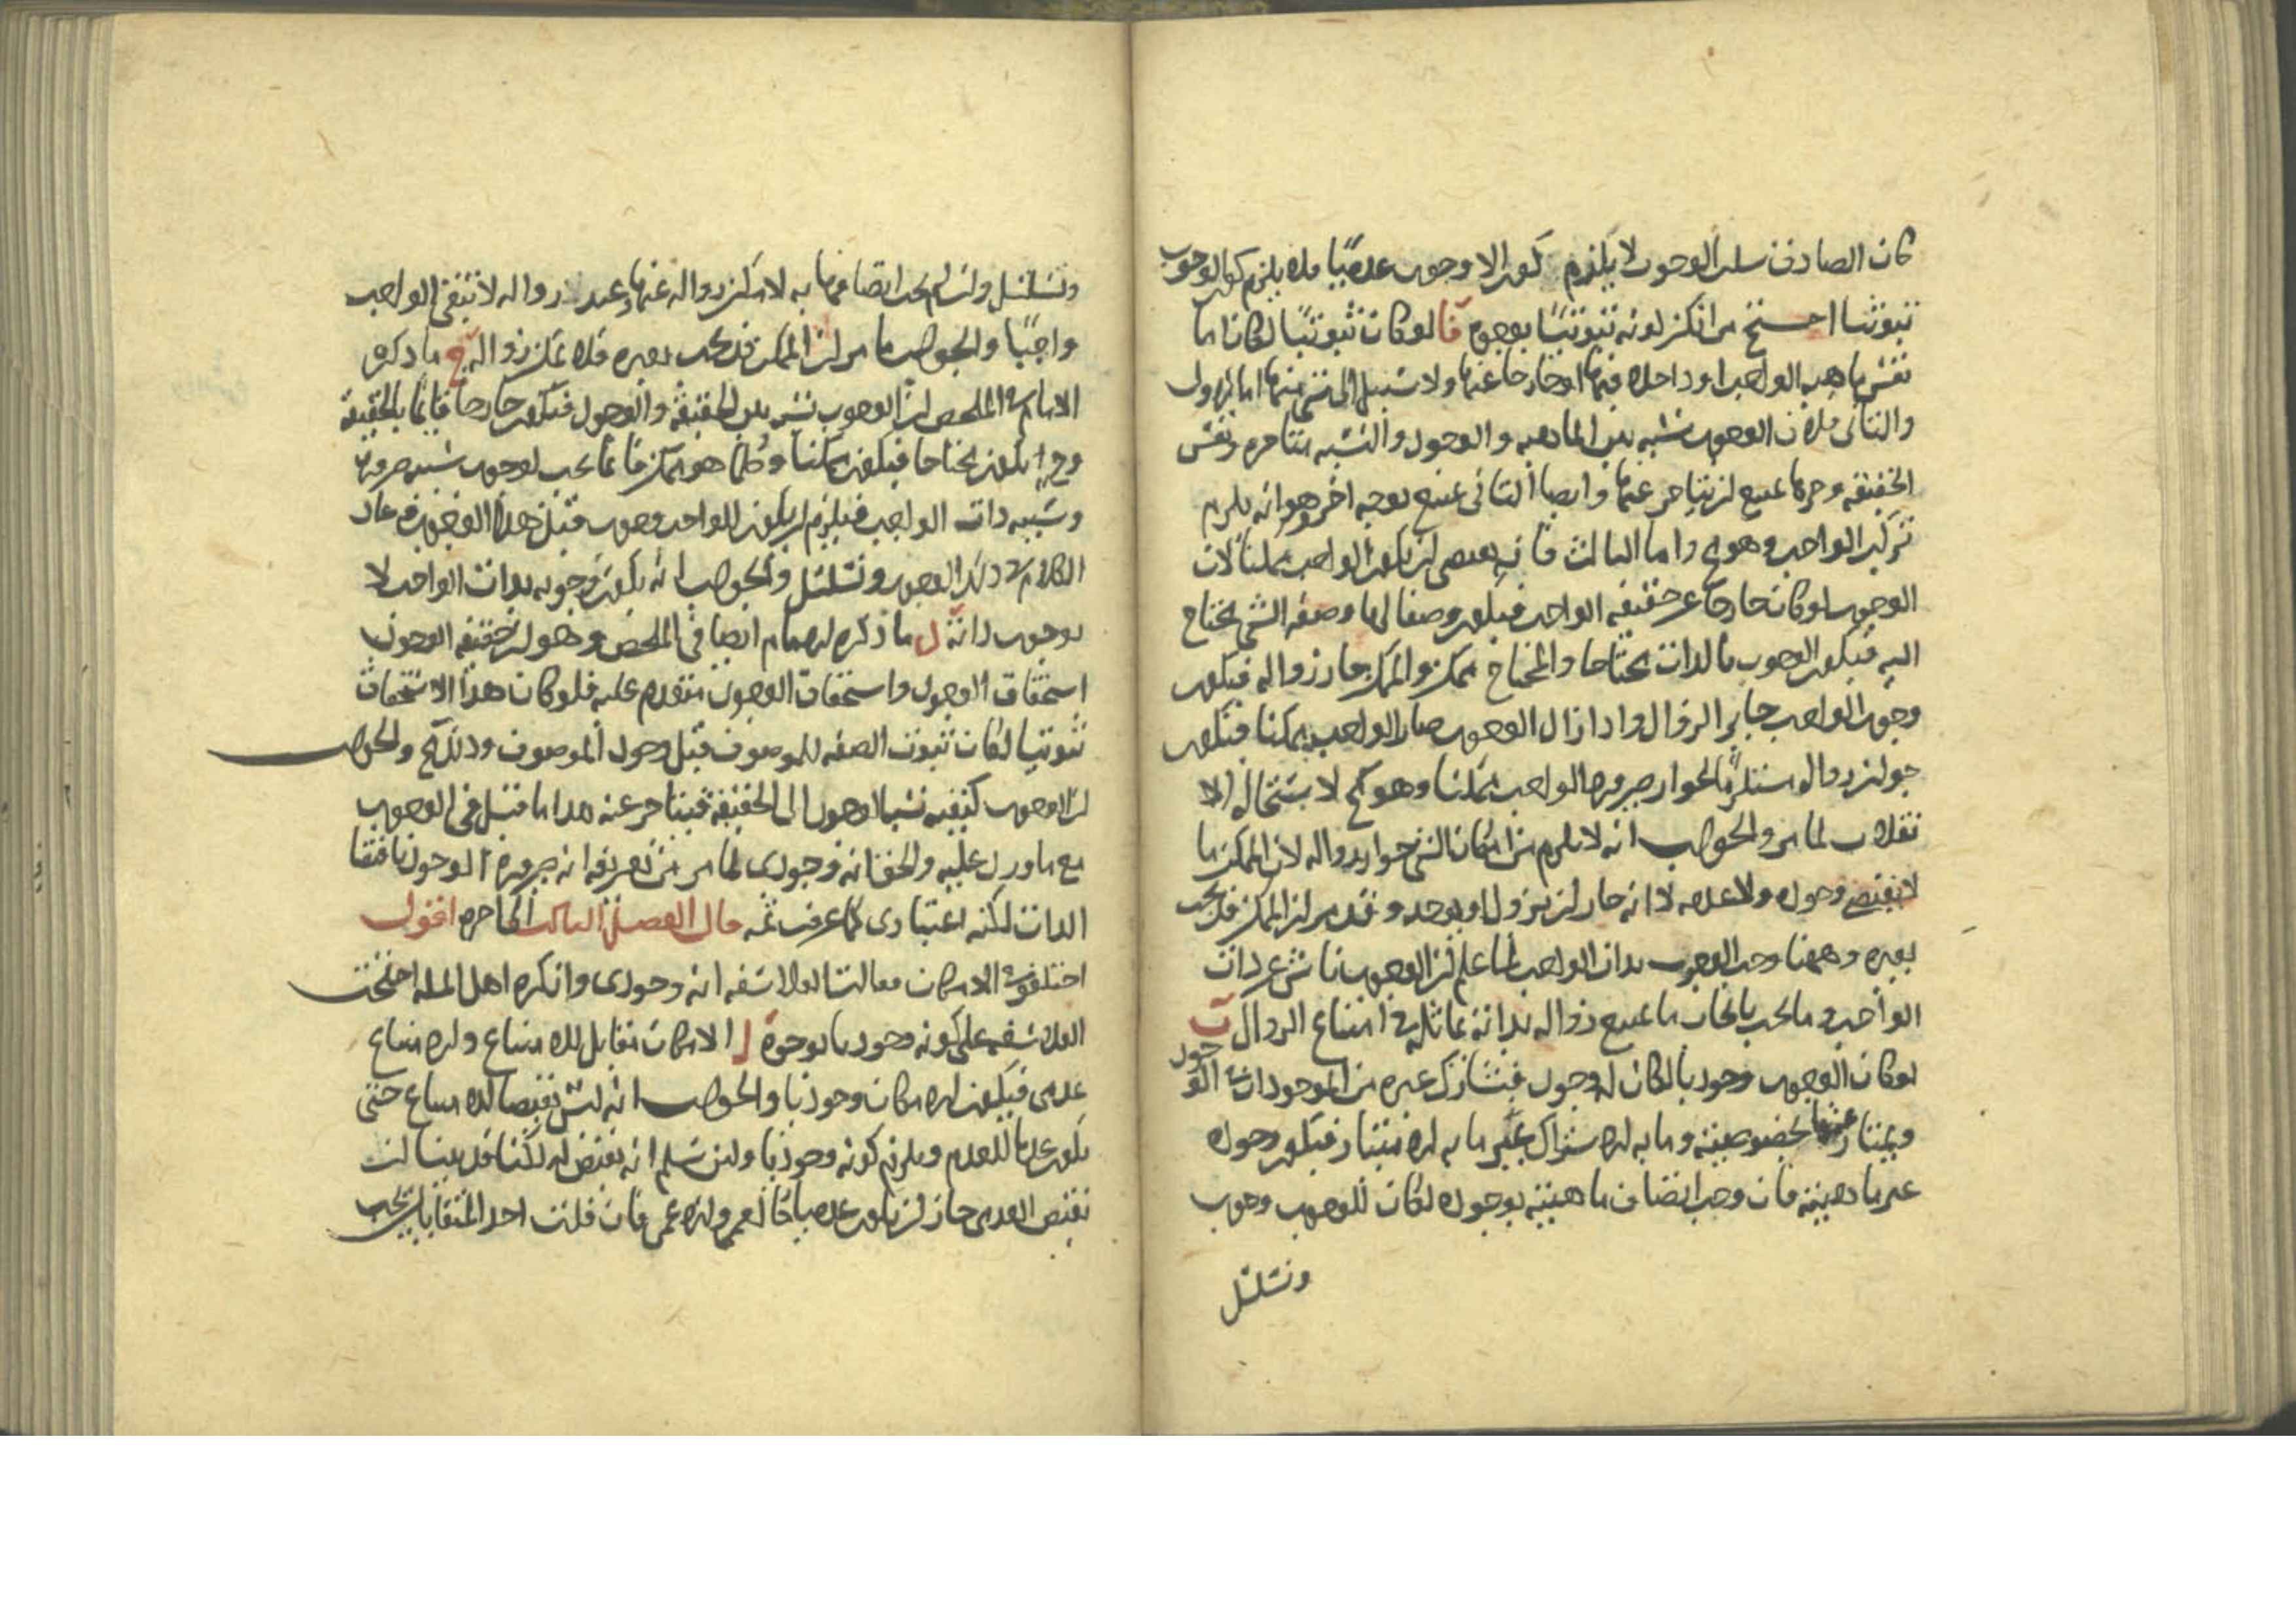 كان الصادق سلب الوجوب لا يلزم كون الا وجوب عدميا فلا يلزم كون الوجوب
ثبوتيا احتج من انكر كونه ثبوتيا بوجوه آ لو كان ثبوتيا لكان اما
نفس ماهية الواجب او داخلا فيها او خارجا عنها ولا سبيل الى شي منها اما الاول
والثاني فلان الوجوب نسبة بين الماهية والوجود والنسبة متاخرة ونفس
الحقيقة وجزءها يمتنع ان يتاخر عنها وايضا الثاني يمتنع بوجه اخر وهو انه يلزم
تركب الواجب وهو مح واما الثالث فانه يقتضي ان يكون الواجب ممكنا لان
الوجوب لو كان خارجا عن حقيقة الواجب فيكون وصفا لها وصفة الشي يحتاج
اليه فيكون الوجوب بالذات محتاجا والمحتاج ممكن والممكن جاز زواله فيكون
وجوب الواجب جايز الزوال واذا زال الوجوب صار الواجب ممكنا فيكون
جواز زواله مستلزما لجواز صيرورة الواجب ممكنا وهو مح لاستحالة الا
نقلاب لما مر والجواب انه لا يلزم من امكان الشي جواز زواله لان الممكن ما
لا يقتضي وجوده ولا عدمه لا انه جاز ان يزول او يوجد وقد مر ان الممكن قد يجب
بغيره وههنا وجب الوجوب بذات الواجب لما علم ان الوجوب ناش عن ذات
الواجب وما يجب بايجاب ما يمتنع زواله بذاته يماثله في امتناع الزوال ب
لو كان الوجوب وجوديا لكان له وجود فيشارك غيره من الموجودات في الوجود
ويمتاز عنها بخصوصيته وما به الاشتراك غير ما به الامتياز فيكون وجوده
غير ماهيته فان وجب اتصاف ماهيته بوجوده لكان للوجوب وجوب
وتسلسل
وتسلسل وان لم يجب اتصافها به لامكن زواله عنها وعند زواله لا يبقى الواجب
واجبا والجواب ما مر ان الممكن قد يجب بغيره فلا يمكن زواله ج ما ذكره
الامام في الملخص ان الوجوب نسبة بين الحقيقة والوجود فيكون خارجا قايما بالحقيقة
وح يكون محتاجا فيكون ممكنا وكلما هو ممكن فانما يجب لوجوب سببه ضرورة
وسببه ذات الواجب فيلزم ان يكون للواجب وجوب قبل هذا الوجوب وعاد
الكلام في ذلك الوجوب وتسلسل والجواب انه يكون وجوبه بذات الواجب لا
بوجوب ذاته د ما ذكره الامام ايضا في الملخص وهو ان حقيقة الوجوب
استحقاق الوجود واستحقاق الوجود متقدم عليه فلو كان هذا الاستحقاق
ثبوتيا لكان ثبوت الصفة للموصوف قبل وجود الموصوف وذلك مح والجواب
ان الوجوب كيفية نسبة الوجود الى الحقيقة فيتاخر عنه هذا ما قيل في الوجوب
مع ما ورد عليه والحق انه وجودي لما مر من تعريفه انه ضرورة الوجود باقتضا
الذات لكنه اعتباري كما عرفت ثمه قال الفصل الثالث الى اخره اقول
اختلفوا في الامكان فقالت الفلاسفه انه وجودي وانكره اهل المله احتجت
الفلاسفه على كونه وجوديا بوجوه آ الامكان مقابل للامتناع والامتناع
عدمي فيكون الامكان وجوديا والجواب انه ليس نقيضا للامتناع حتى
يكون عدما للعدم ويلزم كونه وجوديا ولئن سلم انه نقيض له لكنا قد بينا ان
نقيض العدمي جاز ان يكون عدميا كالعمى واللاعمى فان قلت احد المتقابلين يجب